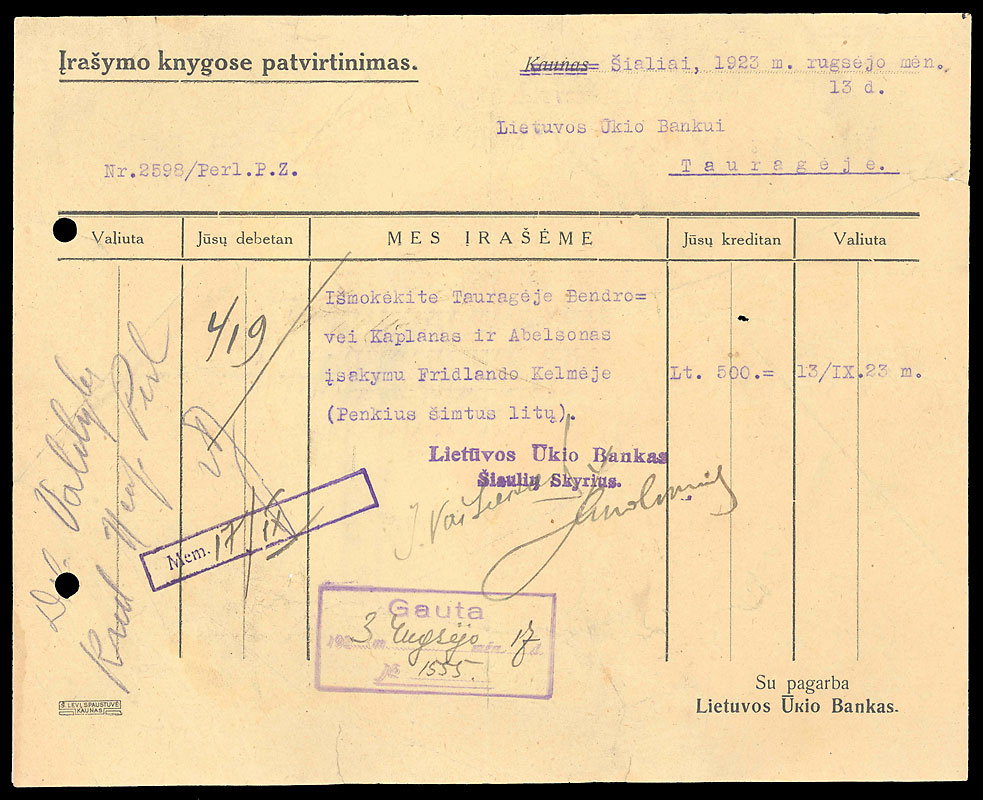 Įrašymo knygose patvirtinimas.
Kaunas= Šialiai, 1923 m. rugsėjo mėn.
13 d.
Lietuvos Ūkio Bankui
Nr.2598/Perl.P.Z.
Tauragėje.
Valiuta Jūsų debetan MES ĮRAŠĖME Jūsų kreditan Valiuta
Išmokėkite Tauragėje Bendro=
vei Kaplanas ir Abelsonas
įsakymu Fridlando Kelmėje Lt. 500.= 13/IX.23 m.
(Penkius šimtus litų).
4/19
Lietuvos Ūkio Bankas
Šiaulių Skyrius.
Mem. 17/IX
Gauta
1923 m. Rugsėjo mėn. 17 d.
№ 1555.
Su pagarba
Lietuvos Ūkio Bankas.
Š. LEVI, SPAUSTUVĖ
KAUNAS